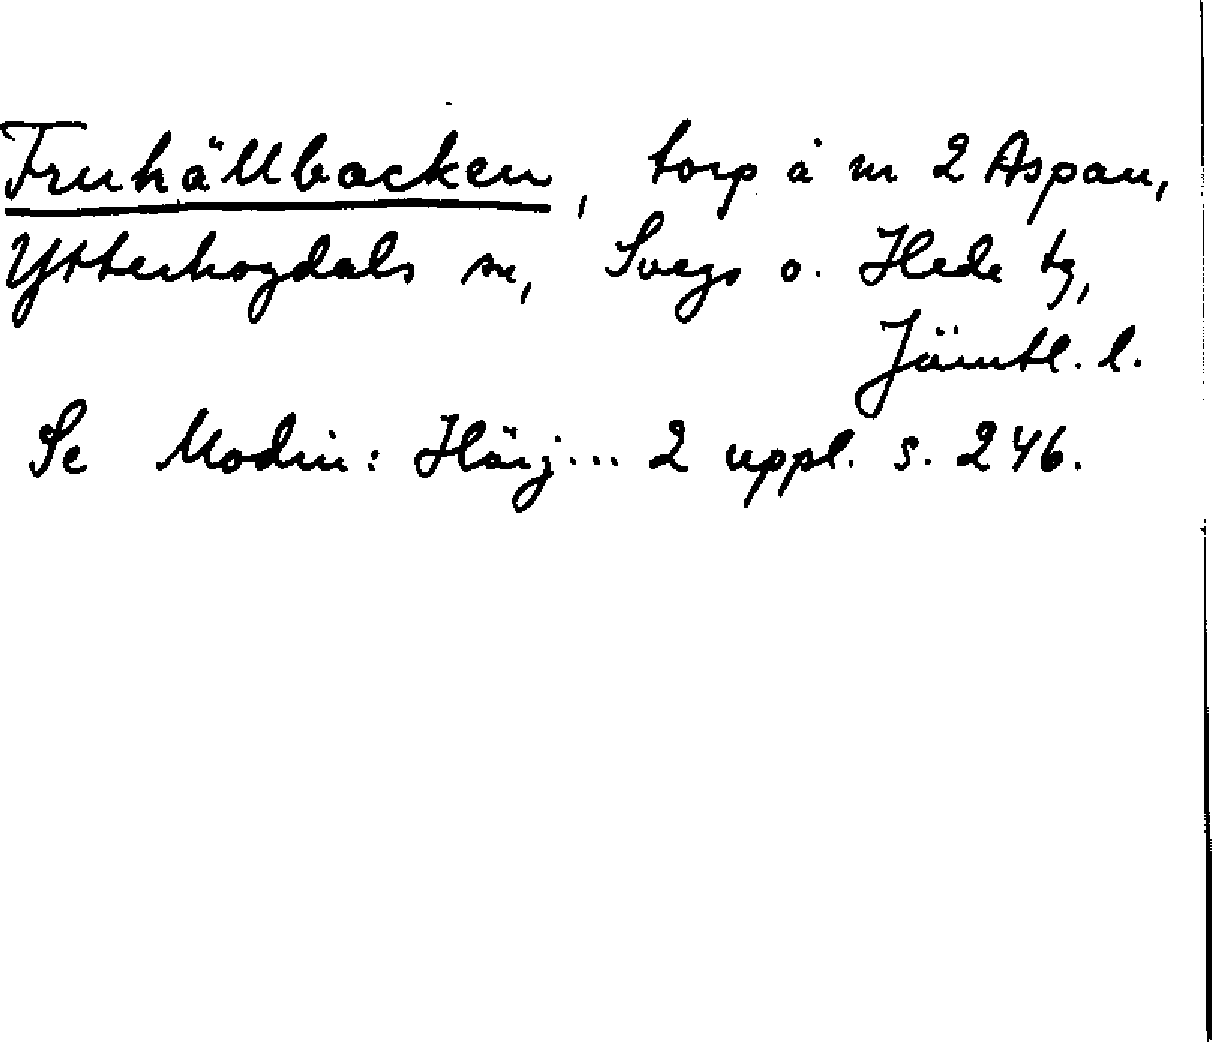 Fruhällbacken, torp å nr 2 Aspan,
Ytterhogdals sn, Svegs o. Hede tg,
Jämtl. l.
Se Modin: Härj... 2 uppl. s. 246.